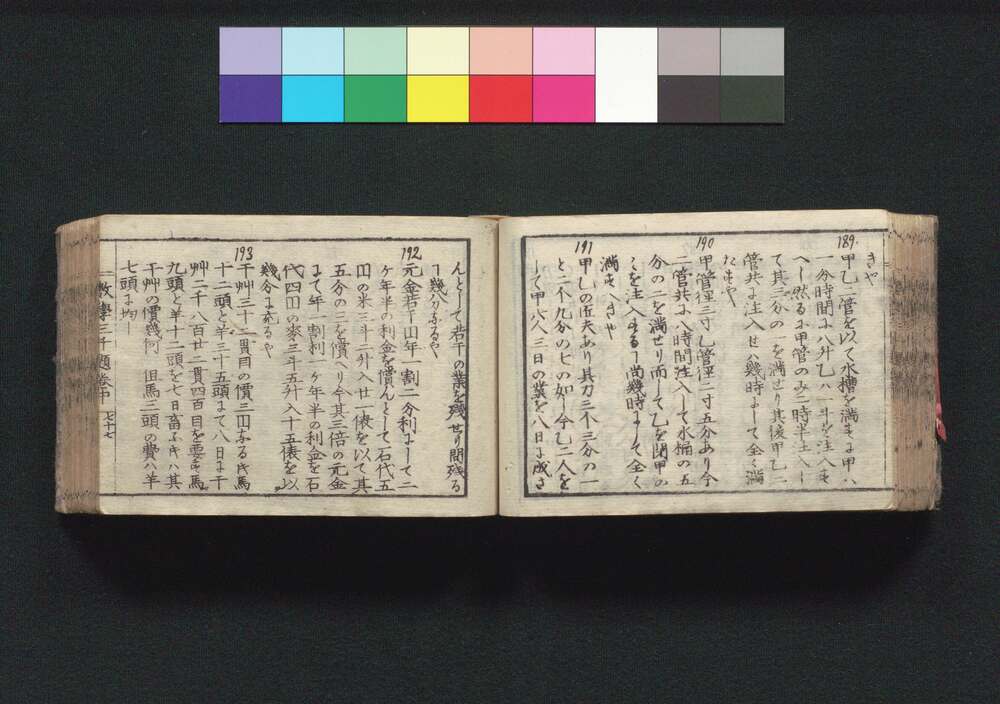 きや
189
甲乙二管を以て水槽を満すに甲ハ
一分時間に八升乙ハ一斗を注入すへ
し然るに甲管のみ二時半注入し
て其三分の一を満せり其後甲乙二
管共に注入せハ幾時にして全く満
たすや
190
甲管径三寸乙管径二寸五分あり今
二管共に八時間注入して水桶の五
分の二を満せり而して乙を閉甲の
ミを注入する尚幾時にして全く
満すへきや
191
甲乙の匠夫あり其力三个三分の一
と二个九分の七の如し今乙二人を
して甲八人三日の業を八日に成さ
んとして若干の業を残せり問残る
幾分なるや
192
元金若干円年一割二分利にして二
ヶ年半の利金を償んとして石代五
円の米三斗二升入廿一俵を以て其
五分の三を償へり今其三倍の元金
にて年一割利一ヶ年半の利金を石
代四円の麥三斗五升入十五俵を以
幾分に充るや
193
干艸三十二貫目の價三円なるき馬
十二頭と羊三十五頭にて八日に干
艸二千八百廿二貫四百目を要す馬
九頭と羊十二頭を七日畜ふキハ其
干艸の價幾何 但馬三頭の費ハ羊
七頭に均し
数學三千題巻中 七十七